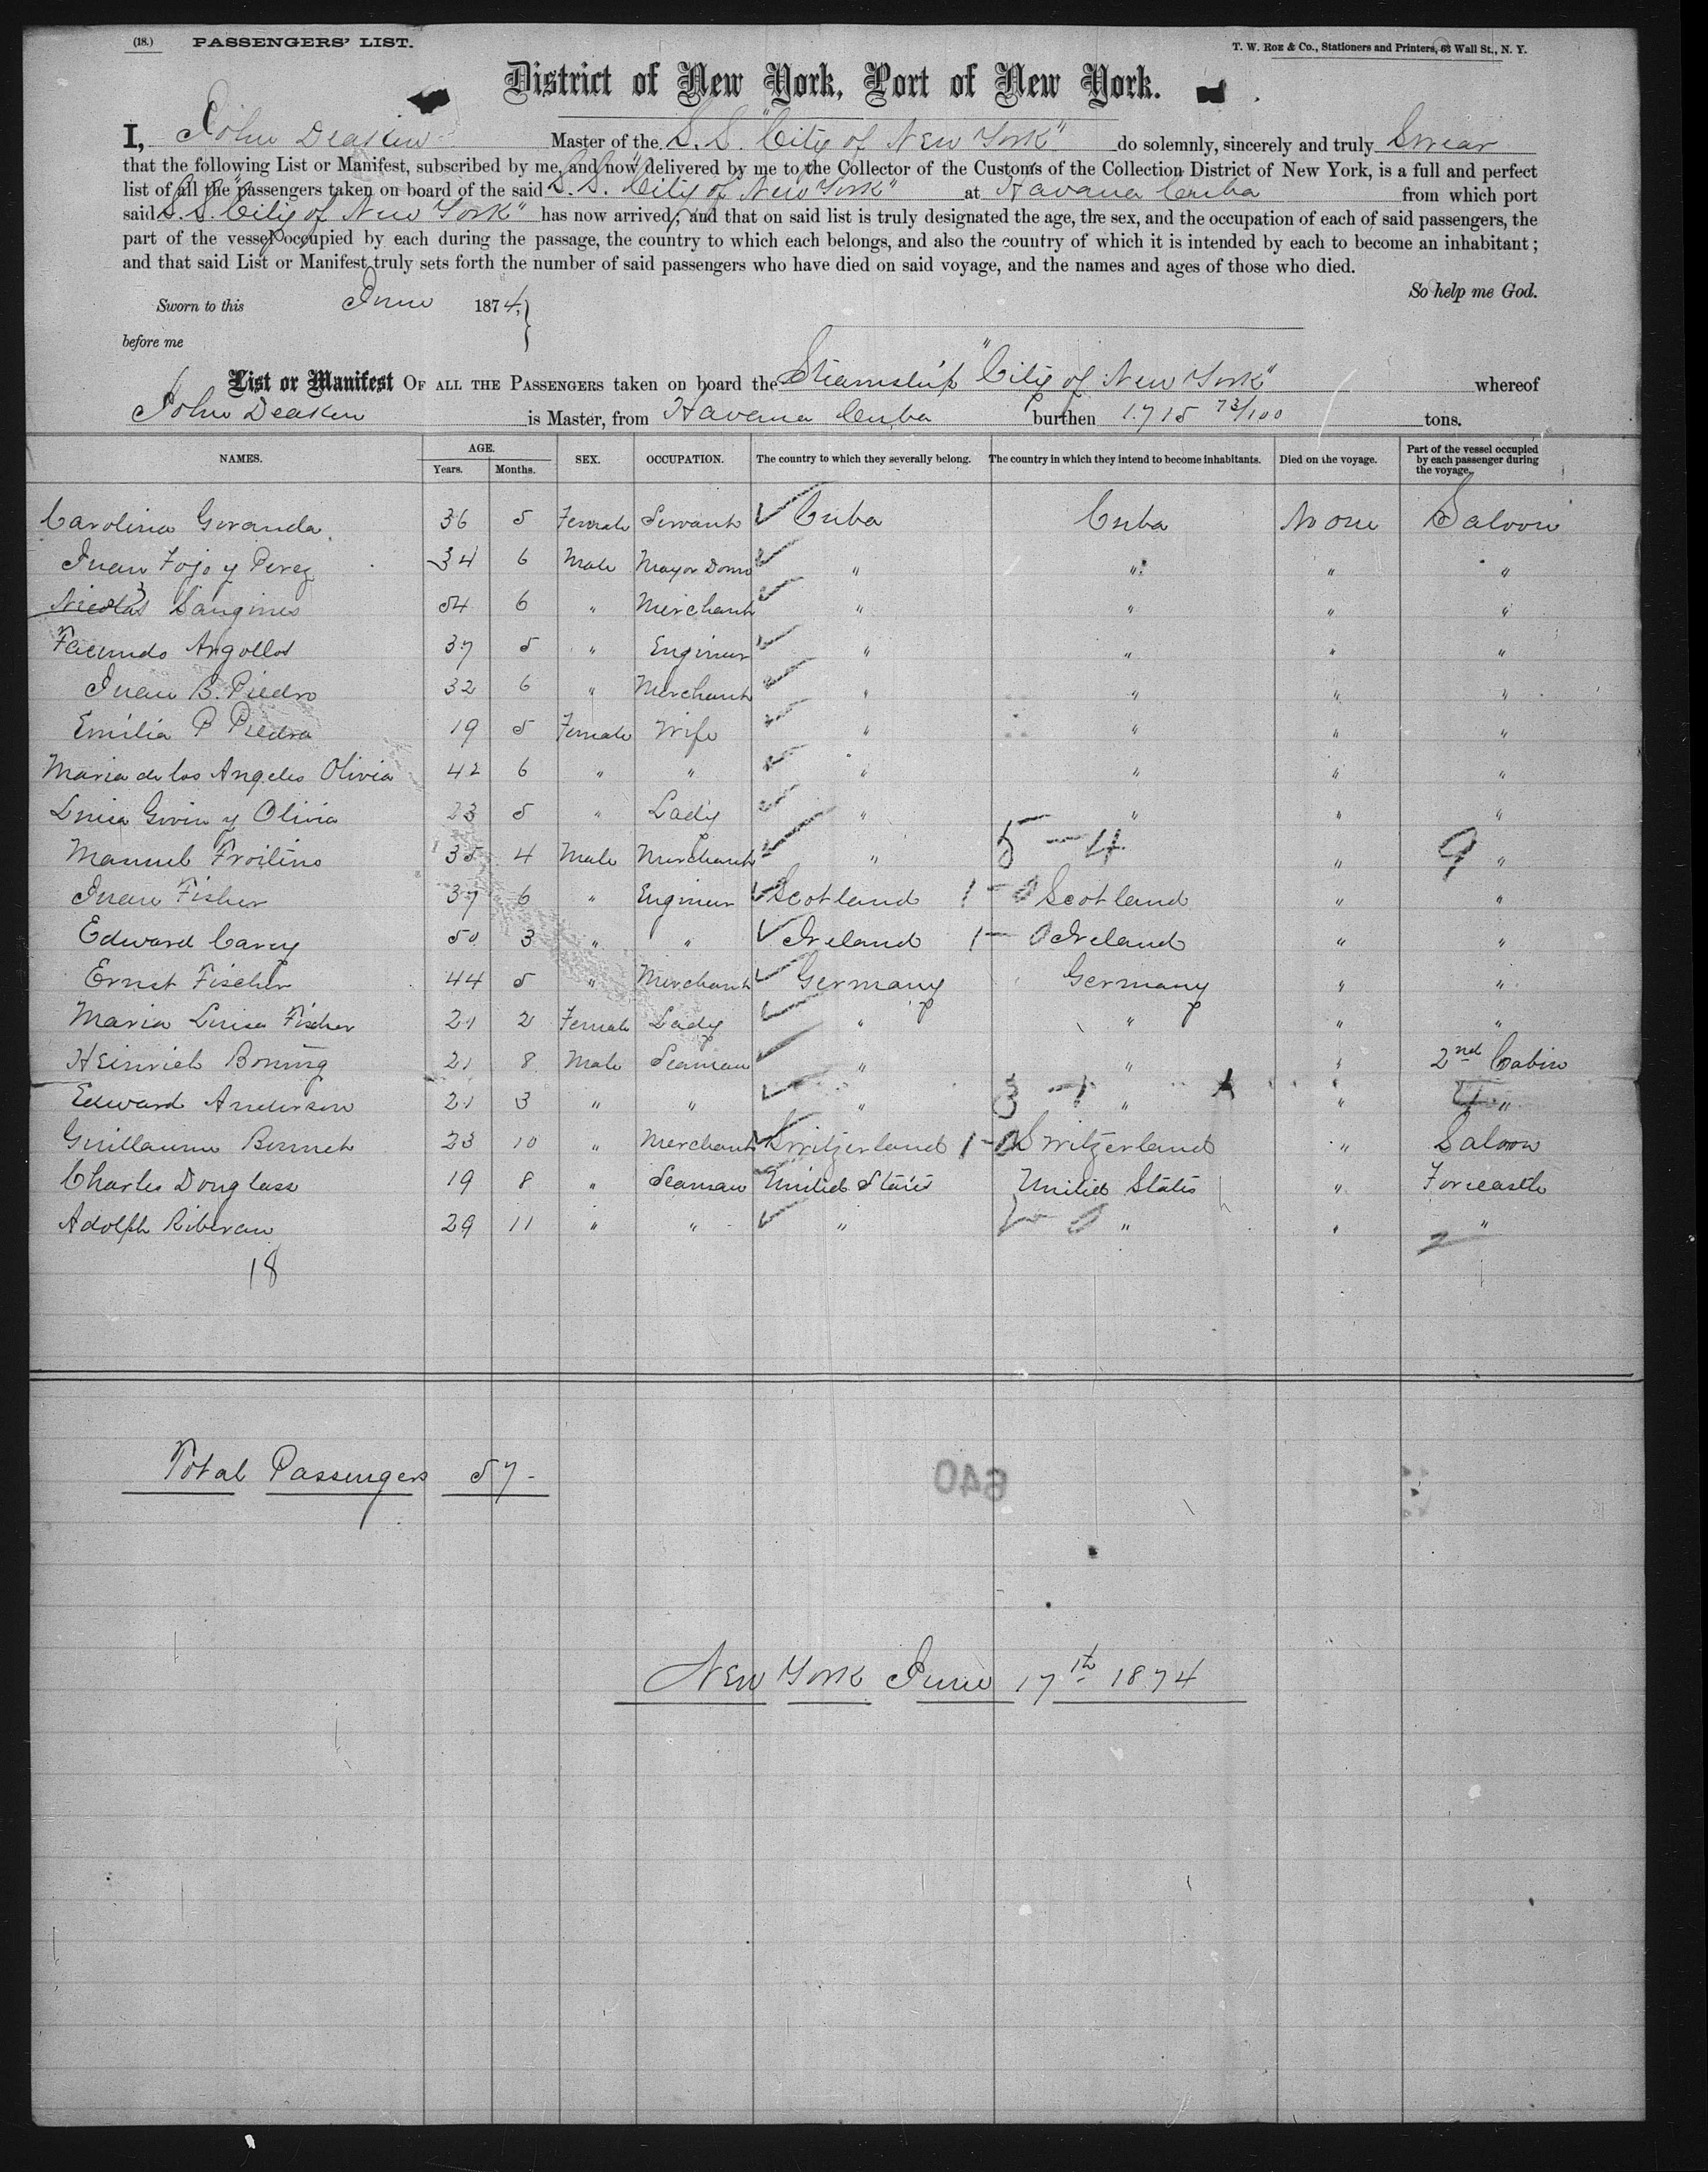 (18.) PASSENGERS' LIST.
T. W. ROE & Co., Stationers and Printers, 63 Wall St., N. Y.
District of New York, Port of New York.
I, John Deaken Master of the S. S. "City of New York" do solemnly, sincerely and truly Swear
that the following List or Manifest, subscribed by me, and now delivered by me to the Collector of the Customs of the Collection District of New York, is a full and perfect
list of all the passengers taken on board of the said S. S. "City of New York" at Havana Cuba from which port
said S. S. City of New York" has now arrived; and that on said list is truly designated the age, the sex, and the occupation of each of said passengers, the
part of the vessel occupied by each during the passage, the country to which each belongs, and also the country of which it is intended by each to become an inhabitant;
and that said List or Manifest truly sets forth the number of said passengers who have died on said voyage, and the names and ages of those who died.
So help me God.
Sworn to this June 1874,
before me
List or Manifest OF ALL THE PASSENGERS taken on board the Steamship "City of New York" whereof
John Deaken is Master, from Havana Cuba burthen 1715 73/100 tons.
NAMES. AGE. Years. Months. SEX. OCCUPATION. The country to which they severally belong. The country in which they intend to become inhabitants. Died on the voyage. Part of the vessel occupied by each passenger during the voyage.
Carolina Goranda 36 5 Female Servant Cuba Cuba None Saloon
Juan Fojo y Perez 34 6 Male Mayor Domo " " " "
Nicolas Sangines 54 6 " Merchant " " " "
Facundo Argollos 37 5 " Engineer " " " "
Juan B. Piedro 32 6 " Merchant " " " "
Emilia P Piedra 19 5 Female Wife " " " "
Maria de los Angeles Olivia 42 6 " " " " " "
Luisa Govin y Olivia 23 5 " Lady " " " "
Manuel Froilino 35 4 Male Merchant " 5 - 4 " 9 "
Juan Fisher 37 6 " Engineer Scotland 1 - 0 Scotland " "
Edward Carey 50 3 " " Ireland 1 - 0 Ireland " "
Ernst Fischer 44 5 " Merchant Germany Germany " "
Maria Luisa Fischer 21 2 Female Lady " " " "
Heinrich Boning 21 8 Male Seaman " " " 2nd Cabin
Edward Anderson 21 3 " " " 3 - 1 " " "
Guillaume Bonnet 23 10 " Merchant Switzerland 1 - 0 Switzerland " Saloon
Charles Douglass 19 8 " Seaman United States United States " Forecastle
Adolph Riberan 29 11 " " " 2 - 0 " " 2 "
18
Total Passengers 57 -
640
New York June 17th 1874